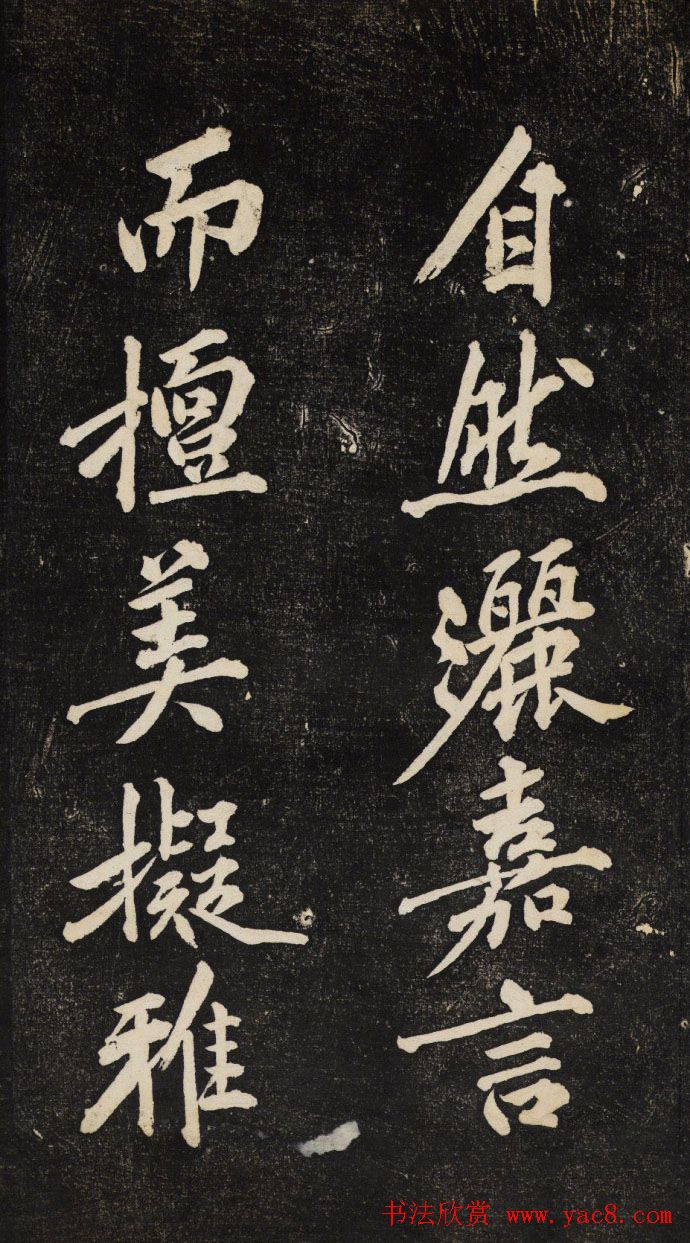 自然灑嘉言
而擅美擬雅
书法欣赏 www.yac8.com